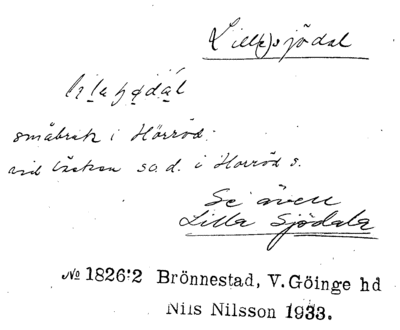 Lill(e)sjödal
småbruk i Hörröd.
vid bäcken so. d. i Hörröd s.
Se även
Lilla Sjödala
№ 1826:2 Brönnestad, V. Göinge hd
Nils Nilsson 1933.